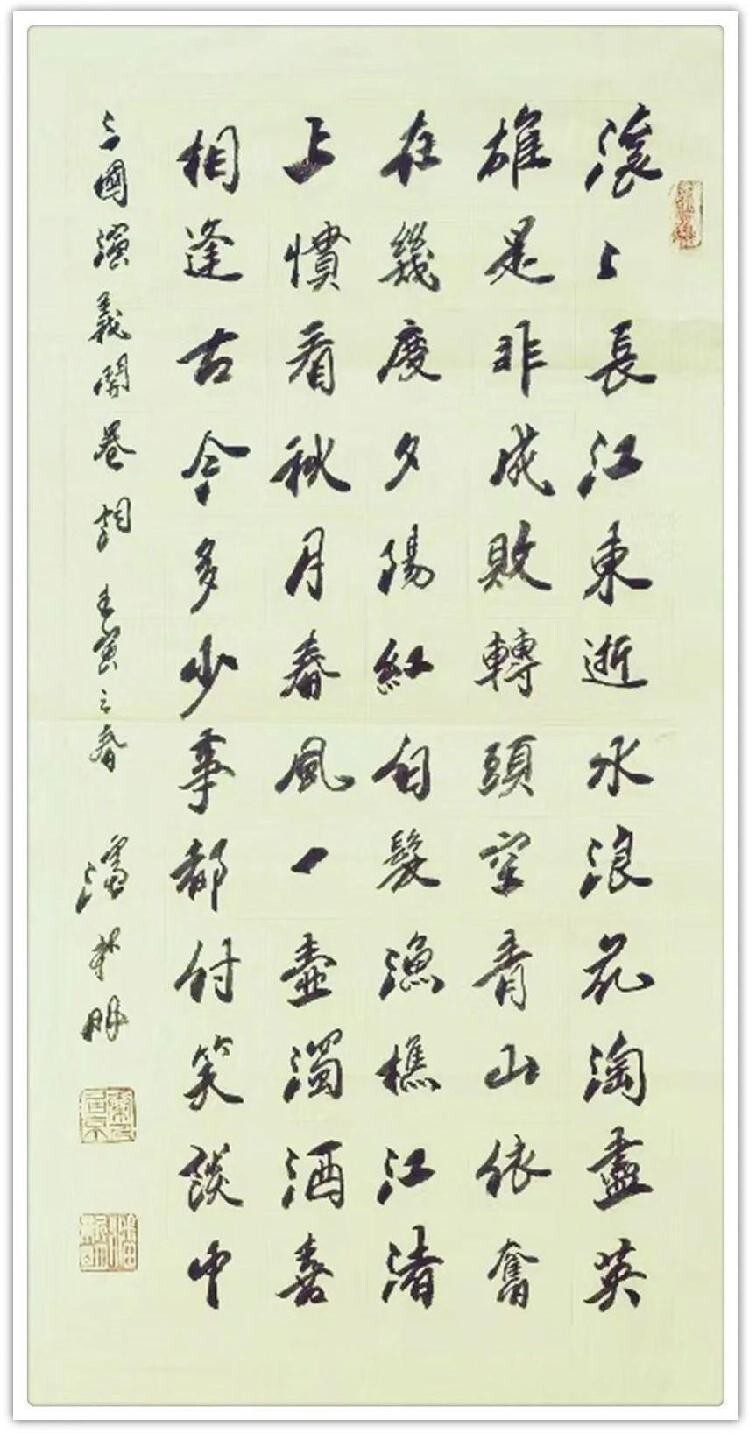 滚〻長江東逝水浪花淘盡英
雄是非成敗轉頭空青山依奮
在幾度夕陽紅白髮漁樵江渚
上慣看秋月春風一壺濁酒喜
相逢古今多少事都付笑談中
三國演義開卷詞 壬寅之春